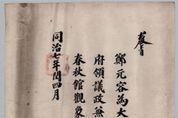 教旨
鄭元容爲大
府領議政兼
春秋館觀象
同治七年閏四月